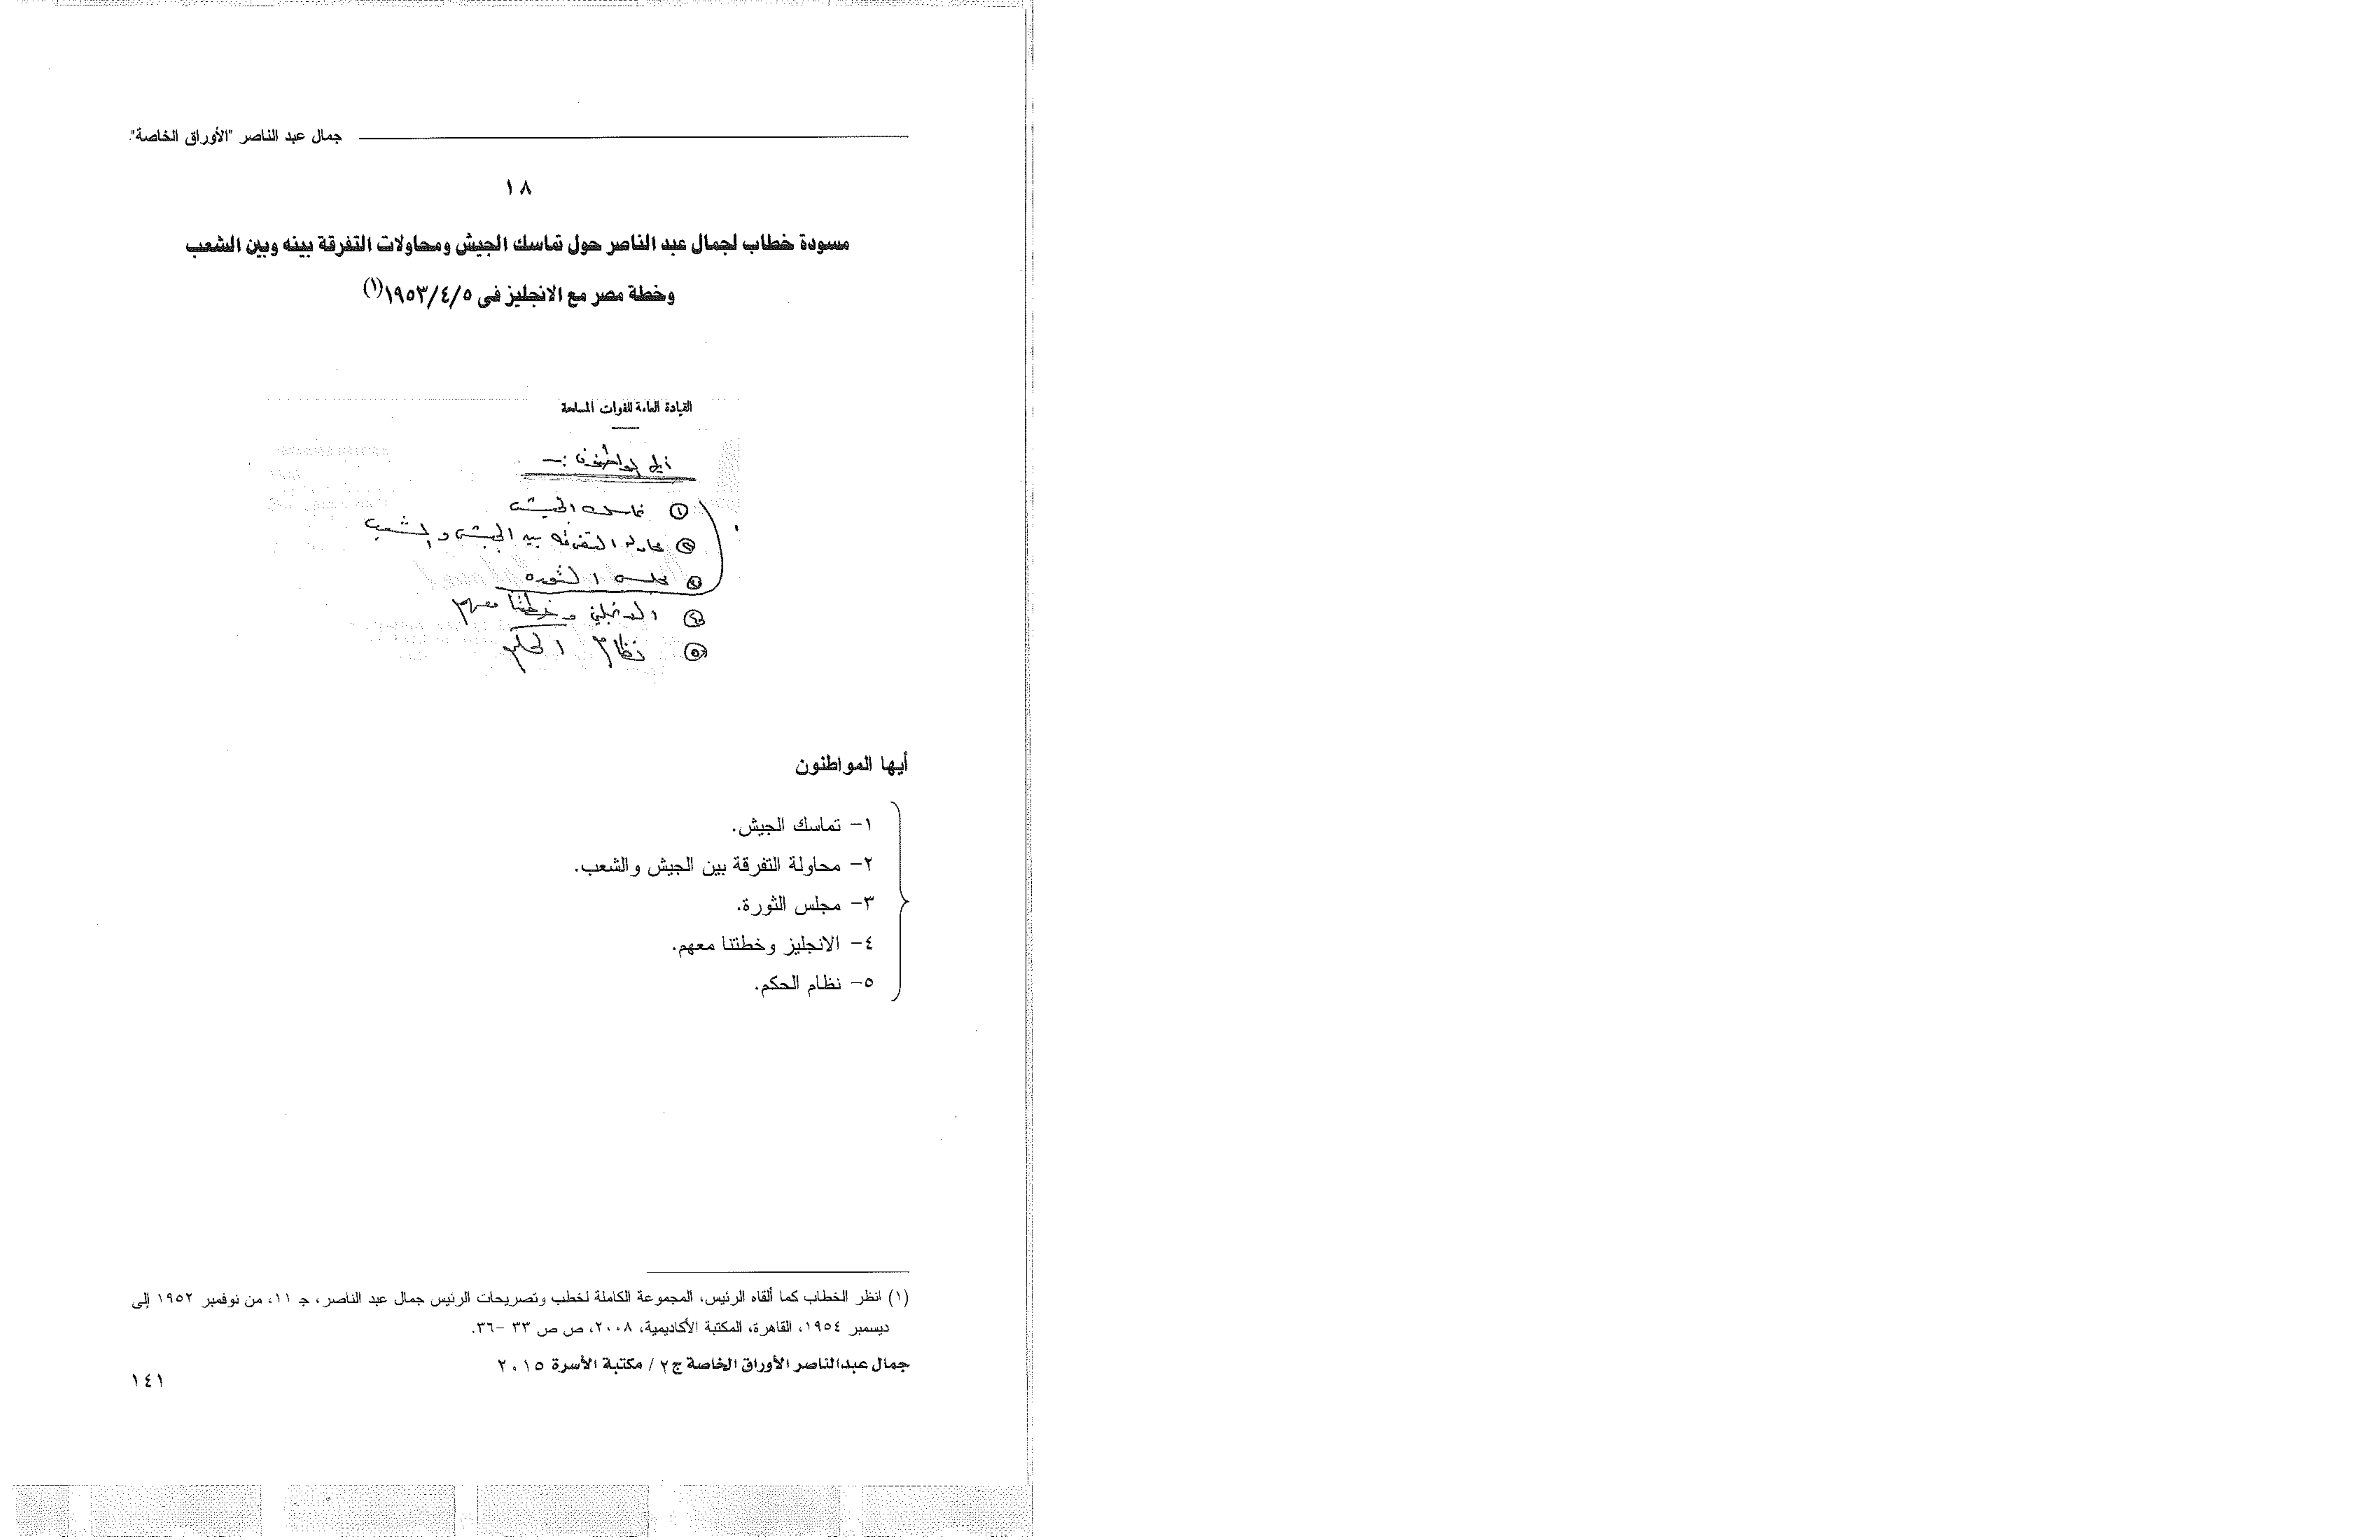 جمال عبد الناصر "الأوراق الخاصة".
١٨
مسودة خطاب لجمال عبد الناصر حول تماسك الجيش ومحاولات التفرقة بينه وبين الشعب
وخطة مصر مع الانجليز فى ١٩٥٣/٤/٥(١)
القيادة العامة للقوات المسلحة
أيها المواطنون :-
١ تماسك الجيش
٢ محاولة التفرقه بين الجيش و الشعب
٣ مجلس الثوره
٤ الانجليز وخطتنا معهم
٥ نظام الحكم
أيها المواطنون
١- تماسك الجيش.
٢- محاولة التفرقة بين الجيش والشعب.
٣- مجلس الثورة.
٤- الانجليز وخطتنا معهم.
٥- نظام الحكم.
(١) انظر الخطاب كما ألقاه الرئيس، المجموعة الكاملة لخطب وتصريحات الرئيس جمال عبد الناصر، جـ ١١، من نوفمبر ١٩٥٢ إلى
ديسمبر ١٩٥٤، القاهرة، المكتبة الأكاديمية، ٢٠٠٨، ص ص ٣٣ -٣٦.
جمال عبدالناصر الأوراق الخاصة ج٢ / مكتبة الأسرة ٢٠١٥
١٤١